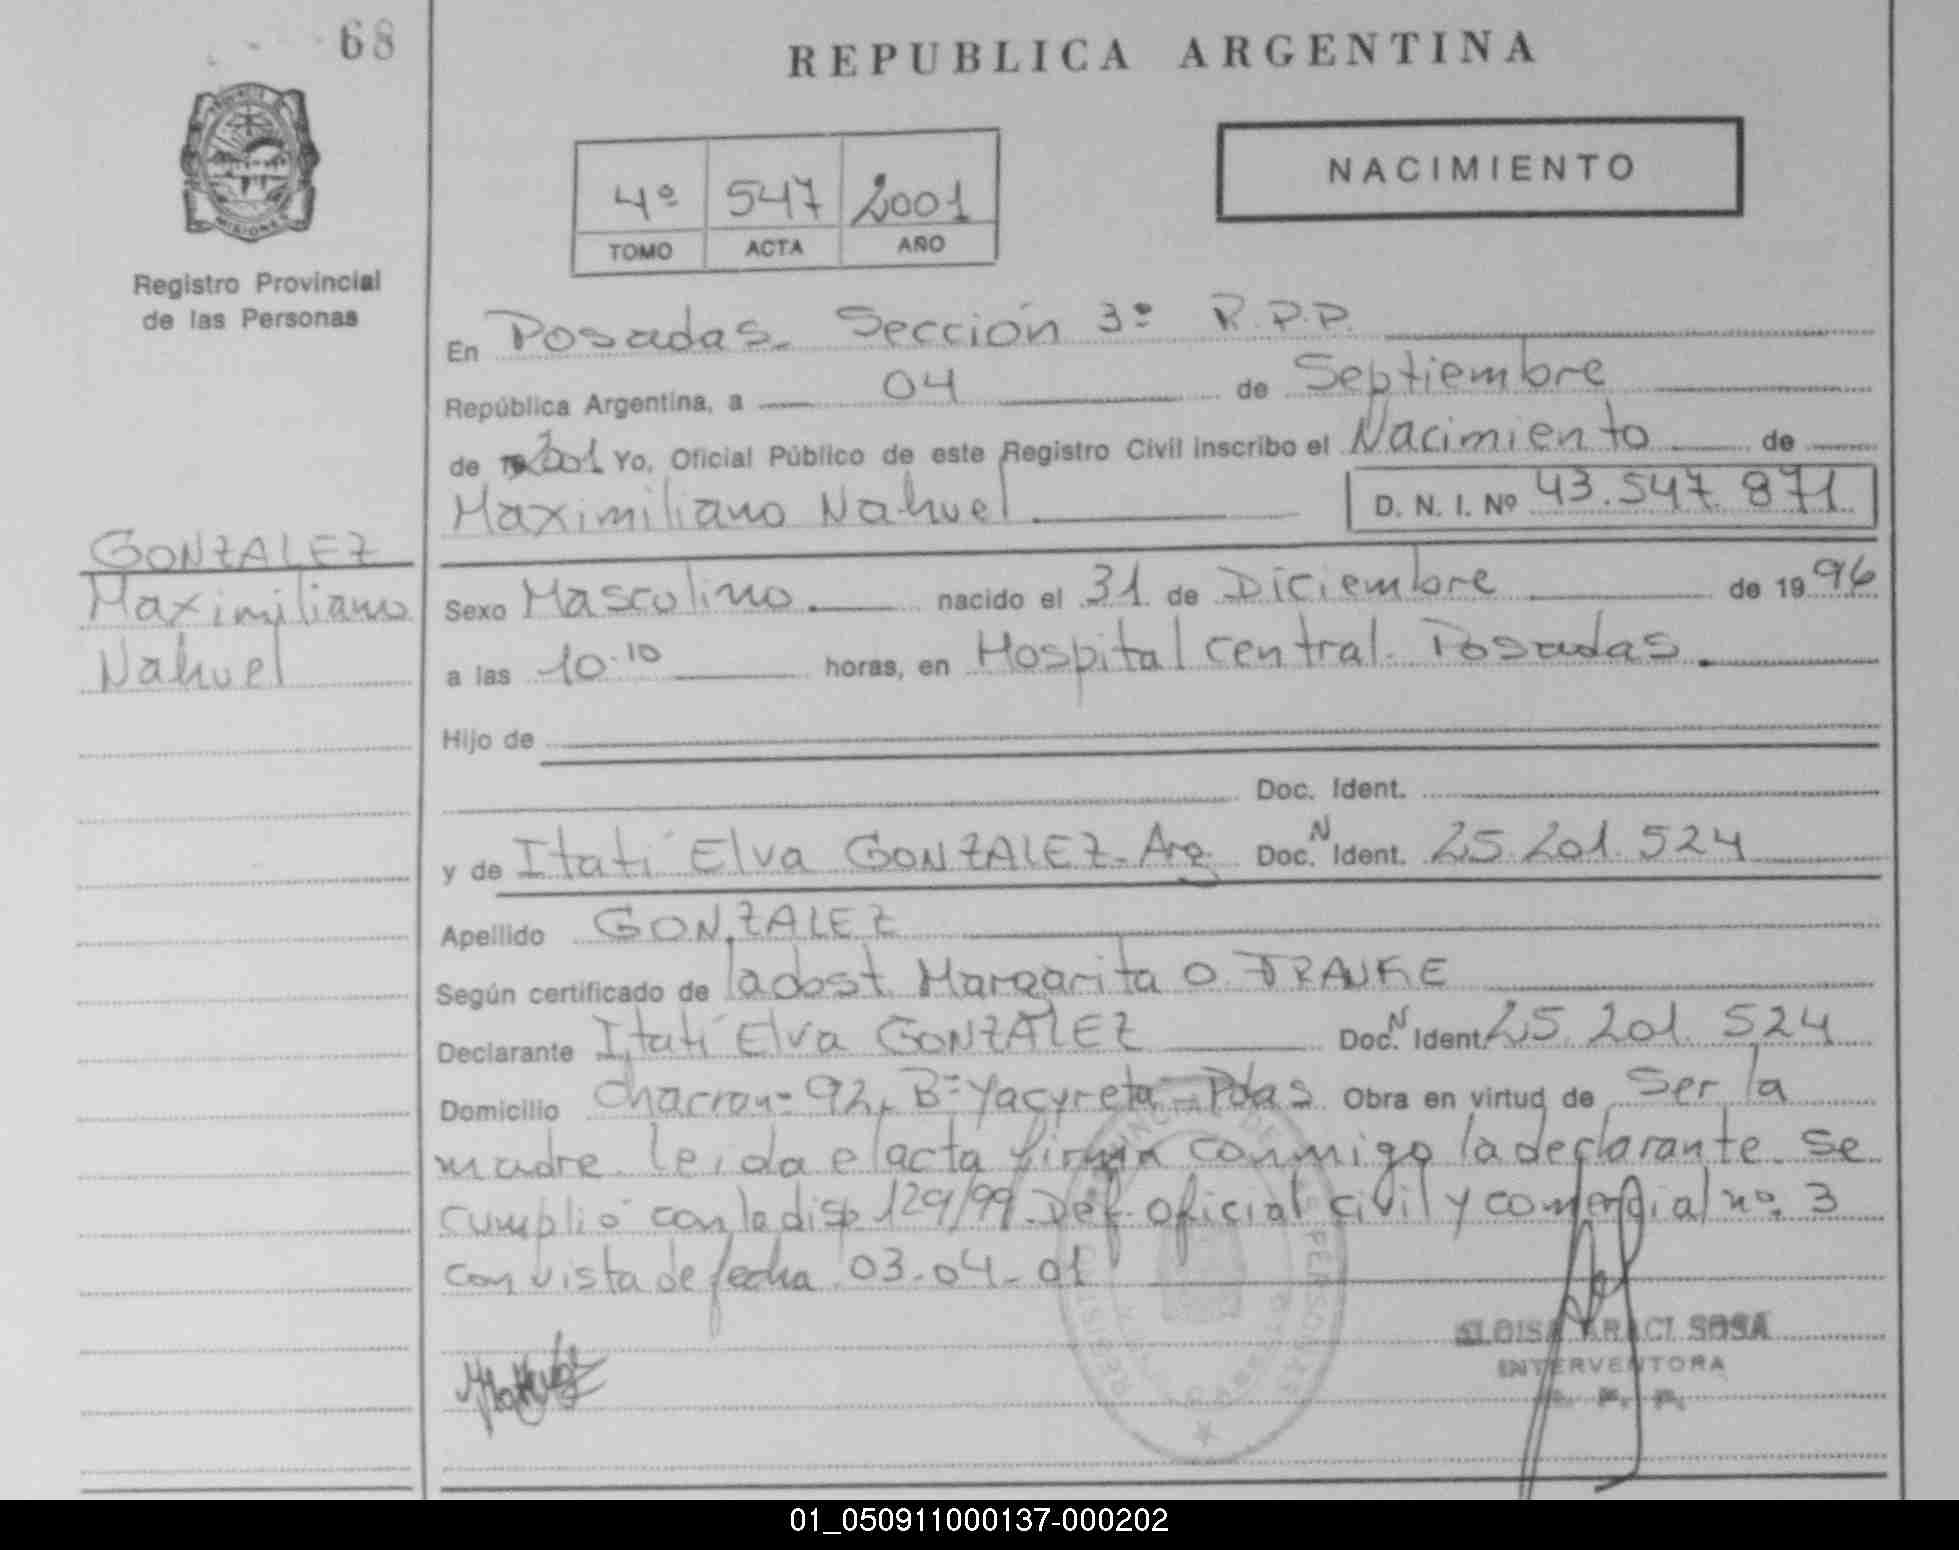 68
REPUBLICA ARGENTINA
NACIMIENTO
4º 547 2001
TOMO ACTA AÑO
Registro Provincial
de las Personas
En Posadas. Sección 3º R.P.P.
República Argentina, a 04 de Septiembre
de 2001 Yo, Oficial Público de este Registro Civil inscribo el Nacimiento de
Maximiliano Nahuel D. N. I. Nº 43.547.871
GONZALEZ
Maximiliano
Nahuel
Sexo Masculino nacido el 31 de Diciembre de 1996
a las 10.10 horas, en Hospital central. Posadas.
Hijo de
Doc. Ident.
y de Itatí Elva GONZALEZ - Arg. Doc. N Ident. 25.201.524
Apellido GONZALEZ
Según certificado de la obst. Margarita O.
Declarante Itatí Elva GONZALEZ Doc. N Ident. 25.201.524
Domicilio 92, Bº Yacyreta - Pdas Obra en virtud de Ser la
madre. leida el acta firma conmigo la declarante. Se
cumplió con la disp 129/99. Def. oficial civil y comercial nº 3
con vista de fecha 03-04-01
ELOISA ARACI SOSA
INTERVENTORA
01_050911000137-000202